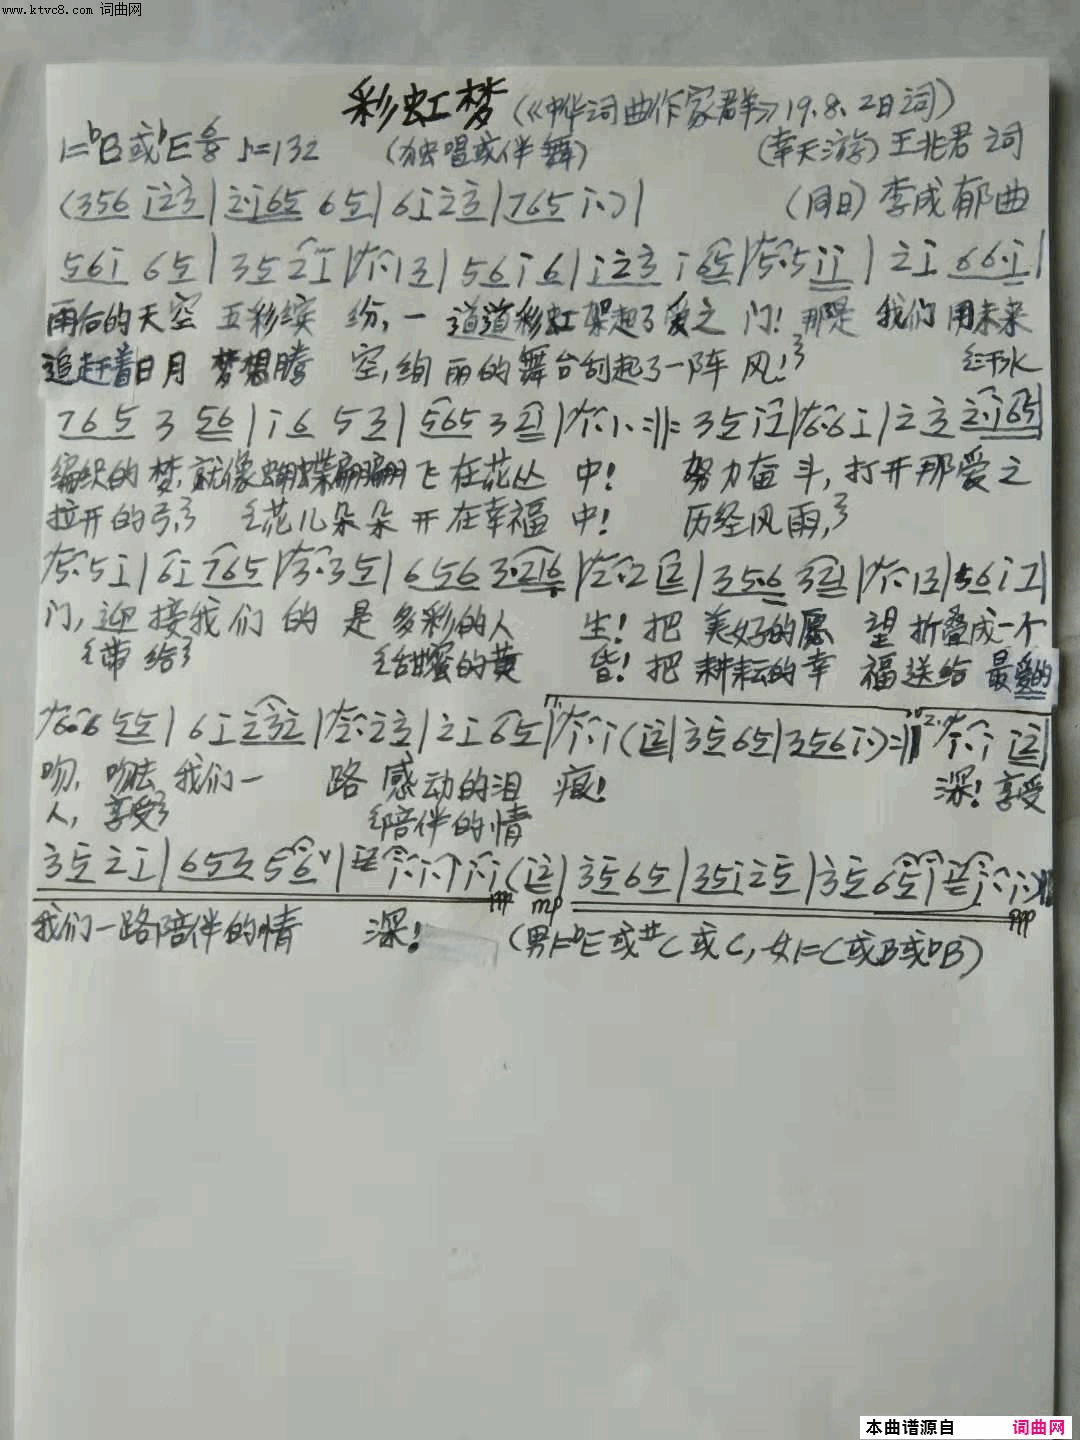 www.ktvc8.com 词曲网
彩虹梦 (《中华词曲作家群》19.8.2日词)
1=bB或bE 6/8 ♪=132 (独唱或伴舞) (幸天游) 王兆君 词
(356 i23|2·i65 65|6i23|765 i·)| (同日) 李成郁 曲
56i 65|35 2i|i·13|56i6|i23 i65|5·5ii|2i 66·i|
雨后的天空 五彩缤 纷,一 道道彩虹架起了爱之 门!那是 我们用未来
追赶着日月 梦想腾 空,绚丽的舞台刮起了一阵 风! 汗水
765 3 56|i6 53|5653 21|1·1·:||:35i2|6·6i|23 2·i65|
编织的梦,就像蝴蝶翩翩飞在花丛 中! 努力奋 斗,打开那爱之
拉开的弓, 花儿朵朵 开在幸福 中! 历经风雨,
5·5i|6i 765|3·35|656 3·216|2·2 12|35·6 321|1·13|56i7|
门,迎接我们的 是多彩的人 生!把 美好的愿 望 折叠成一个
带给 甜蜜的黄 昏!把 耕耘的幸 福送给 最爱的
6·6 55|6i 232|2·23|2i 65|i·i(12|35 65|356 i·):|| 2. i·i 12|
吻,吻去 我们一 路 感动的泪 痕! 深!享受
人,享受 陪伴的情
35 2i|653 56 v|i·i·|i·i·(12|35 65|35i25|35 65|i·i·)||
mp mp ppp
我们一路陪伴的情 深! (男1=bE或#C或C,女1=C或B或bB)
本曲谱源自 词曲网